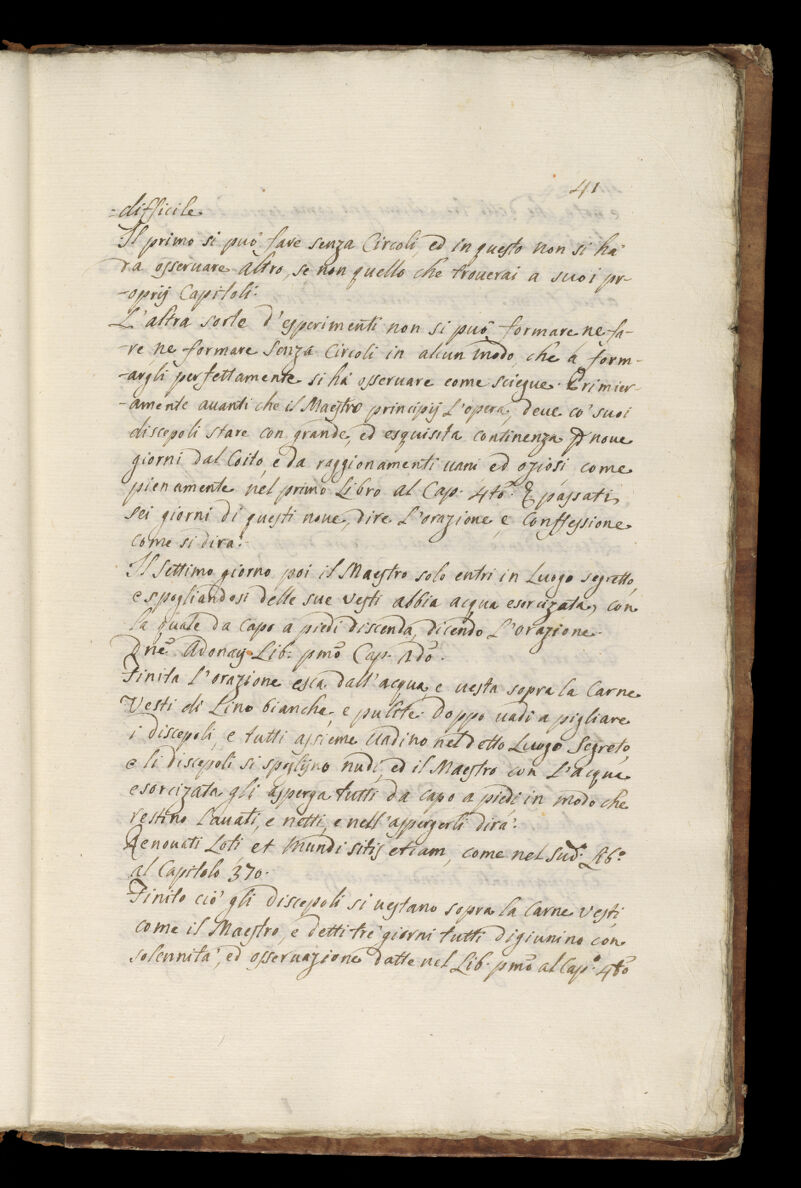 41
=difficile
Il primo si può fare senza Circoli, ed in questo non si hà
da osseruare altro, se non quello che trouerai a suoi pr-
-oprij Capitoli.
L'altra sorte d'esperimenti non si può formare ne fa-
-re ne formare senza Circoli in alcun modo, che à form-
-argli perfettamente si hà osseruare come sciegue. Primier-
-amente auanti che il Maestro principij L'opera, deue co' suoi
discepoli stare con grande, ed esquisita continenza P noue
giorni dal Coito, e da raggionamenti uani ed oziosi come
pienamente nel primo Libro al Cap. 4to. E passati
sei giorni di questi noue, dire L'orazione, e Conffessione
come si dirà.
Il Settimo giorno poi il Maestro solo entri in Luogo segretto,
e spogliandosi delle sue Vesti abbia acqua esorcizata, con
la quale da capo a piedi discenda, dicendo L'orazione.
Dne Adonay. Lib. pmo Cap. 2do.
Finita L'orazione esca dall'acqua, e uesta sopra la Carne
Vesti di Lino bianche, e pulite. Doppo uadi a pigliare
i discepoli, e tutti assieme uadino nel detto Luogo Segreto,
e li discepoli si spoglijno nudi, ed il Maestro con L'acqua
esorcizata gli asperga tutti da capo a piedi, in modo che
restino Lauati, e netti, e nell'aspergerli dirà.
Renouati Loti et Mundi sitis etiam, come nel Sud. Libo.
al Capitolo 370.
Finito ciò gli discepoli si uestano sopra la Carne Vesti
come il Maestro, e detti trè giorni tutti digiunino con
solennità, ed osseruazione datte nel Lib. pmo al Capo. 4to